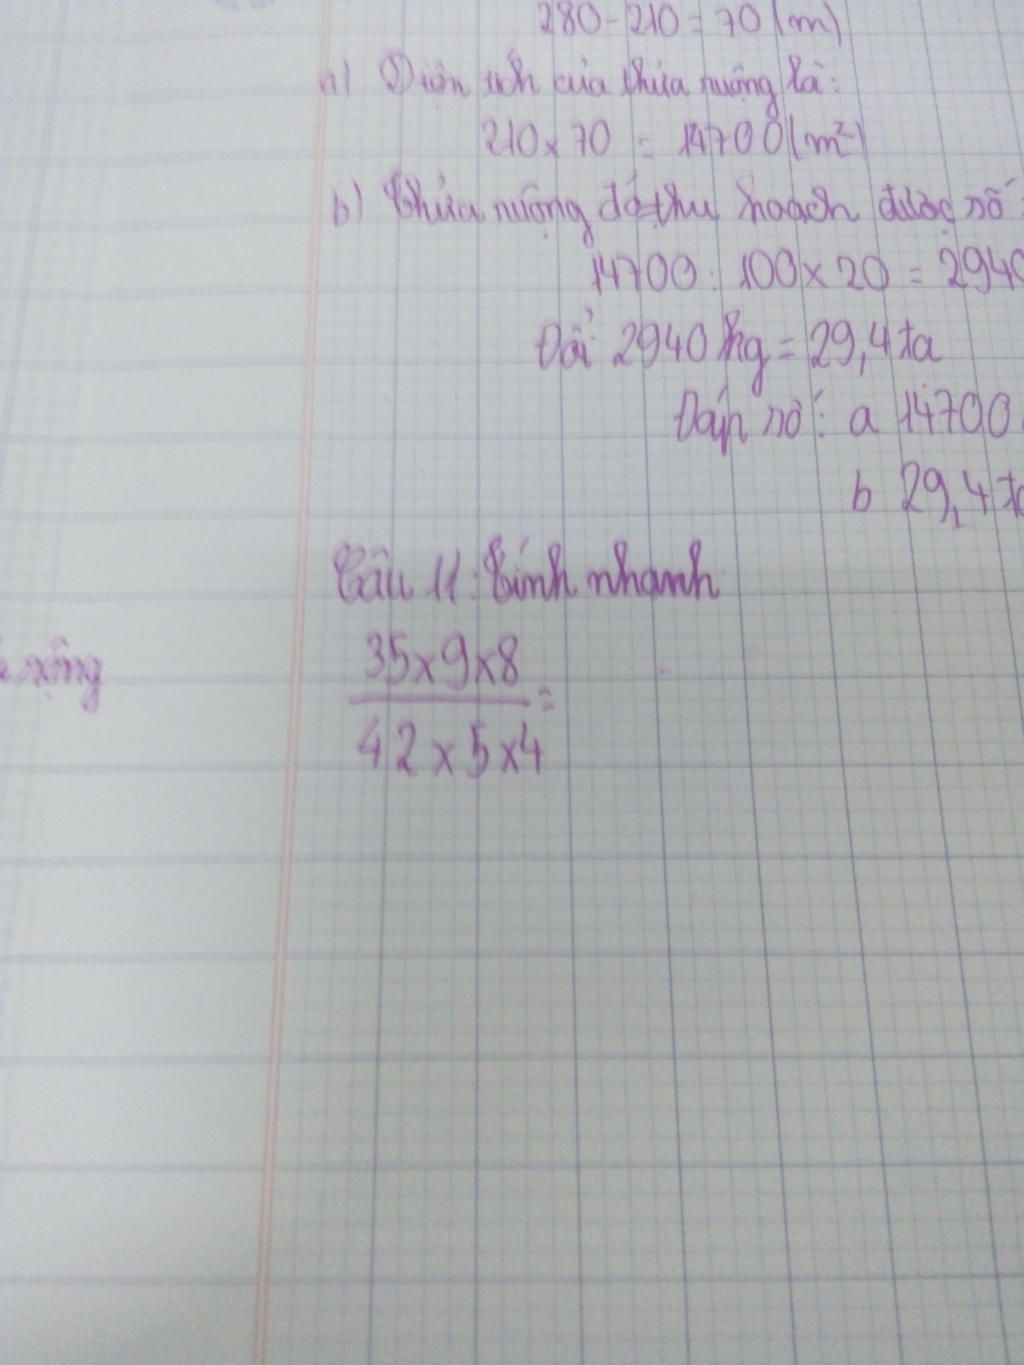 280-210=70(m)
a) Diện tích của thửa ruộng là:
210x70 = 14700(m²)
b) Thửa ruộng đó thu hoạch được số
14700: 100x20 = 2940
Đổi 2940kg=29,4 tạ
Đáp số: a 14700
b 29,4 tạ
Câu 11: Tính nhanh
35x9x8
=
42x5x4